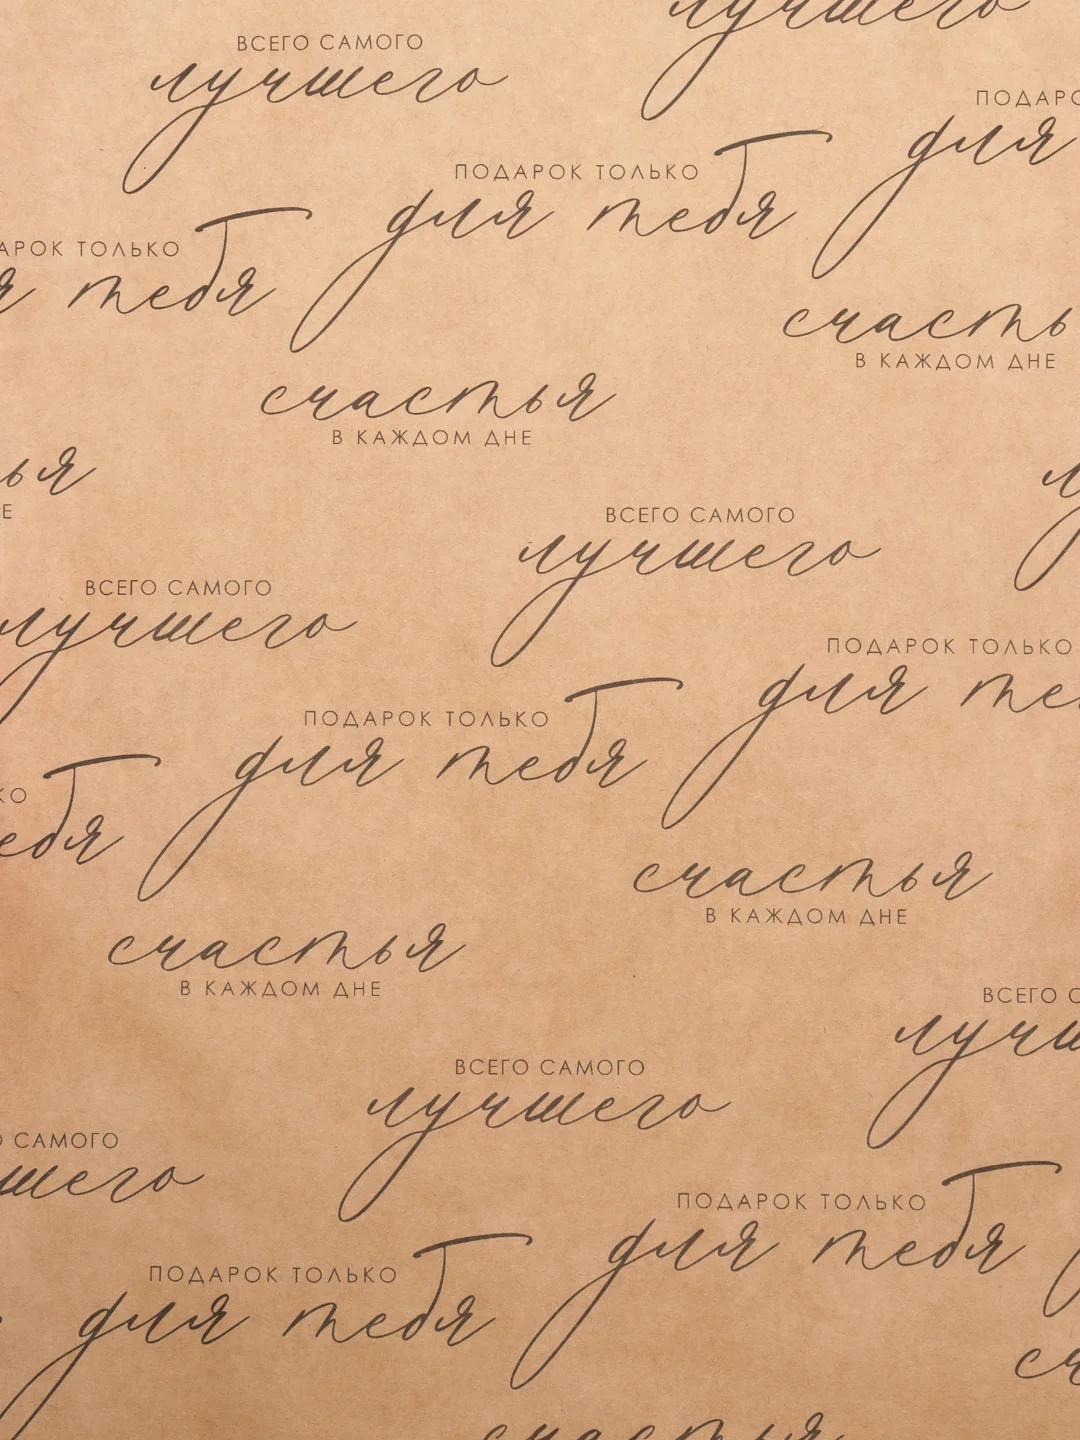 лучшего
ВСЕГО САМОГО
лучшего
ПОДАРОК ТОЛЬКО
для тебя
для
ТОЛЬКО
тебя
счастья
В КАЖДОМ ДНЕ
счастья
В КАЖДОМ ДНЕ
ВСЕГО САМОГО
лучшего
ВСЕГО САМОГО
лучшего
ПОДАРОК ТОЛЬКО
для
ПОДАРОК ТОЛЬКО
для тебя
счастья
В КАЖДОМ ДНЕ
счастья
В КАЖДОМ ДНЕ
ВСЕГО
ВСЕГО САМОГО
лучшего
САМОГО
ПОДАРОК ТОЛЬКО
для тебя
ПОДАРОК ТОЛЬКО
для тебя